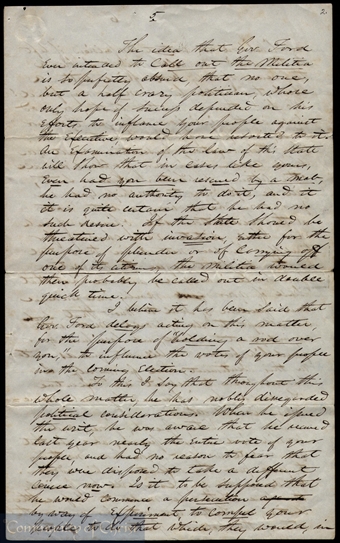 5
2.
The idea that Gov. Ford
ever intended to Call out the Militia
is so perfectly absurd, that no one,
but a half crazy politician, whose
only hope of success depended on his
efforts to inflame your people against
the Executive would have resorted to it.
An Examination of the law of this State
will show that in cases like yours,
Even had you been rescued by a mob,
he had no authority to do it, and it
it is quite certain that he had no
such desire. If the State should be
threatened with invasion, either for the
purpose of plunder or of carrying off
one of its citizens, the Militia would
then probably be called out in double
quick time.
I believe it has been said that
Gov. Ford delays acting on this matter,
for the purpose of holding a rod over
you, to influence the votes of your people
in the coming Election.
To this I say that throughout this
whole matter, he has nobly disregarded
political considerations. When he issued
the writ, he was aware that he received
last year nearly the entire vote of your
people, and had no reason to fear that
they were disposed to take a different
course now. Is it to be supposed that
he would commence a persecution
by way of Experiment to compel your
people to do that which, they would, in